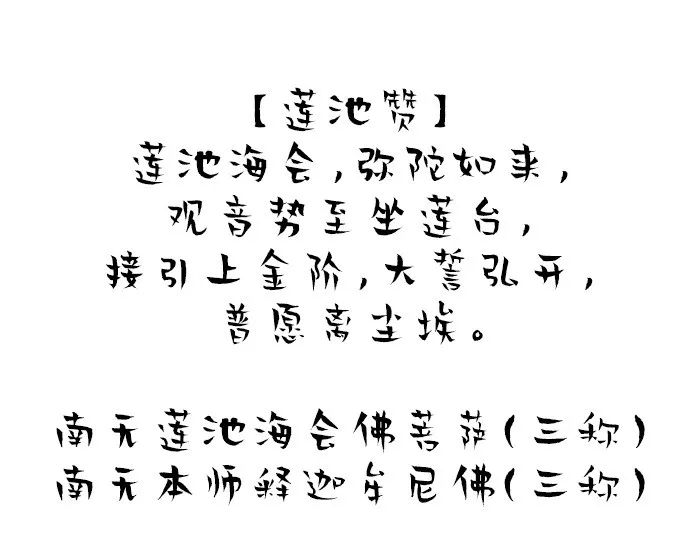 【莲池赞】
莲池海会,弥陀如来,
观音势至坐莲台,
接引上金阶,大誓弘开,
普愿离尘埃。
南无莲池海会佛菩萨(三称)
南无本师释迦牟尼佛(三称)